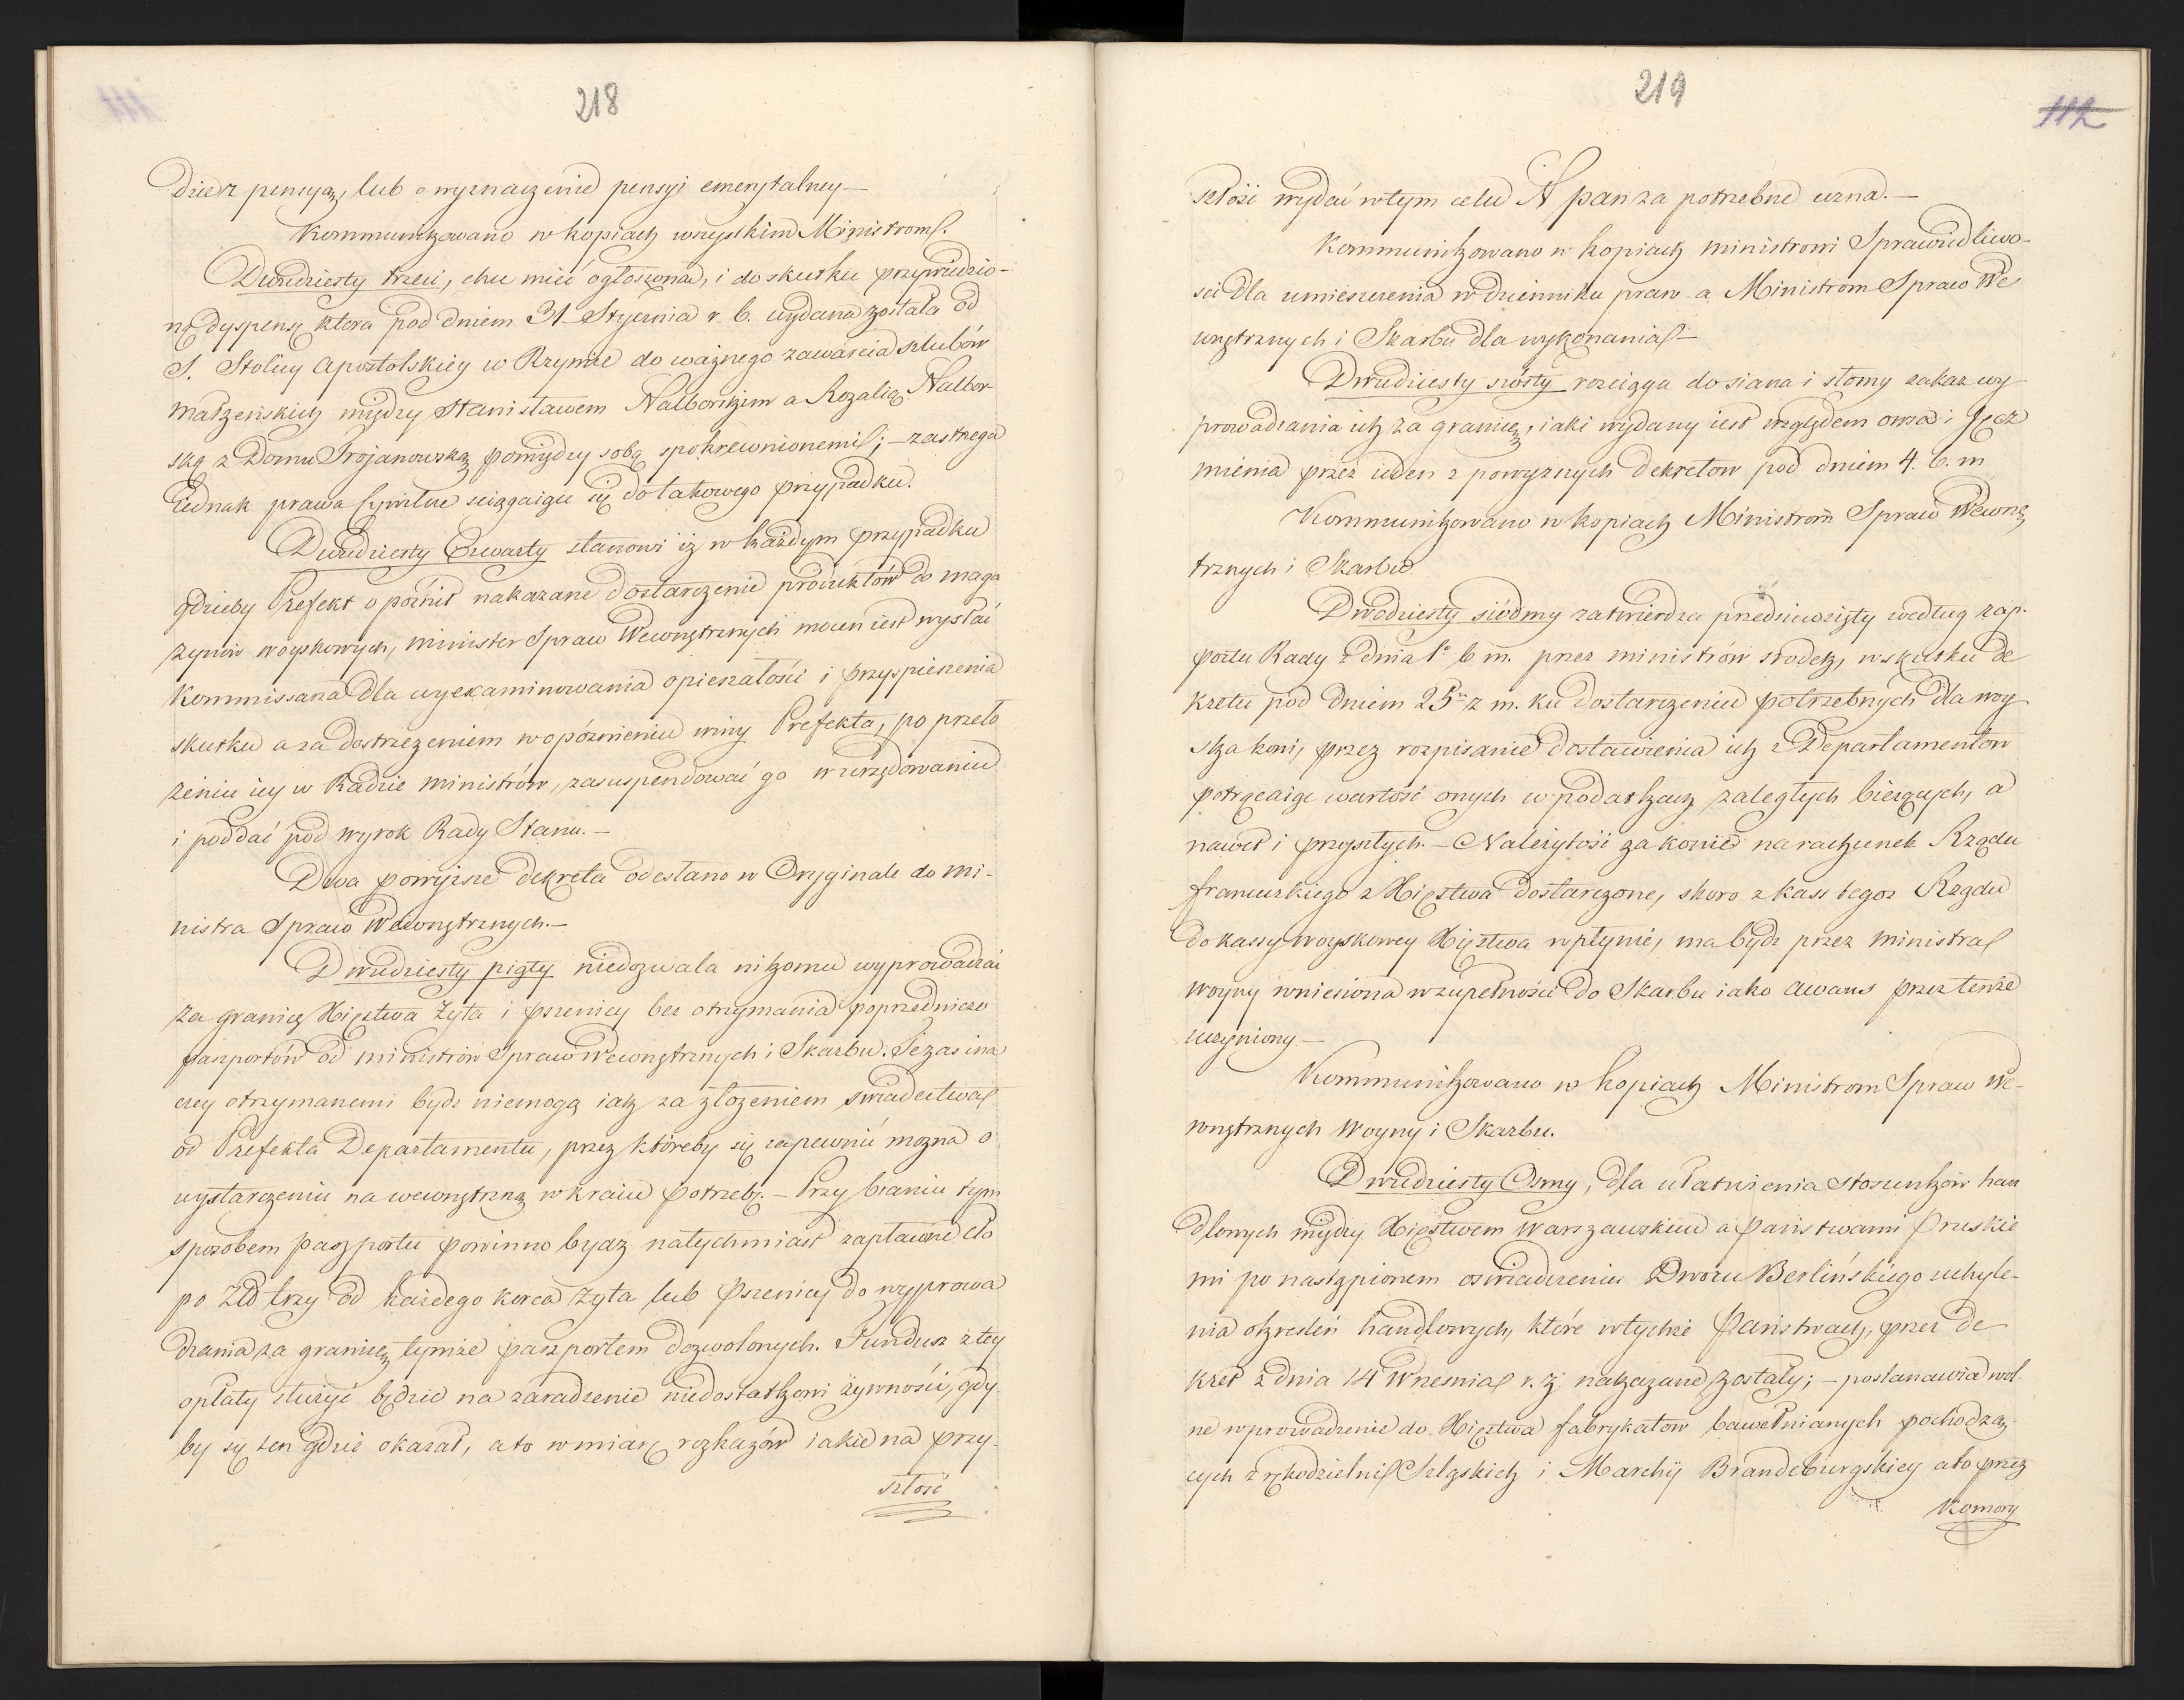 218
dzież pensyą, lub o wyznaczenie pensyi emerytalney —
Kommunikowano w kopiach wszystkim Ministrom.
Dwudziesty trzeci, chce mieć ogłoszoną, i do skutku przywiedzio-
ną dyspensę ktora pod dniem 31 Stycznia r. b. wydana została od
S. Stolicy Apostolskiey w Rzymie do ważnego zawarcia szlubów
małżeńskich między Stanisławem Nalborskim a Rozalią Nalbor-
ską z Domu Trojanowską pomiędzy sobą spokrewnionemi; — zastrzega
iednak prawa cywilne sciągaiące się do takowego przypadku.
Dwudziesty Czwarty stanowi iż w każdym przypadku
gdzieby Prefekt opóźnił nakazane dostarczenie produktów do maga
zynów woyskowych, minister Spraw Wewnętrznych mocen iest wysłać
Kommissarza dla wyexaminowania opieszałości i przyspieszenia
skutku a za dostrzeżeniem w opóźnieniu winy Prefekta, po przeło
żeniu iey w Radzie ministrów, zasuspendować go w urzędowaniu
i poddać pod wyrok Rady Stanu. —
Dwa powyższe dekreta odesłano w Oryginale do mi-
nistra Spraw Wewnętrznych. —
Dwudziesty piąty niedozwala nikomu wyprowadzać
za granicę Xięstwa żyta i pszenicy bez otrzymania poprzedniczo
paszportów od ministrów Spraw Wewnętrznych i Skarbu. Te zas ina
czey otrzymanemi bydz niemogą iak za złożeniem swiadectwa
od Prefekta Departamentu, przez któreby się zapewnić mozna o
wystarczeniu na wewnętrzną w kraiu potrzebę. — Przy braniu tym
sposobem paszportu powinno bydz natychmiast zapłacone cło
po Złł trzy od każdego korca żyta lub pszenicy do wyprowa
dzania za granicę tymże paszportem dozwolonych. Fundusz z tey
opłaty służyć będzie na zaradzenie niedostatkowi żywności, gdy-
by się ten gdzie okazał, a to w miarę rozkazów iakie na przy-
szłość
219
112
szłość wydać w tym celu N Pan za potrzebne uzna. —
Kommunikowano w kopiach ministrowi Sprawiedliwo-
sci dla umieszczenia w dzienniku praw a Ministrom Spraw We
wnętrznych i Skarbu dla wykonania —
Dwudziesty szósty rozciąga do siana i słomy zakaz wy
prowadzania ich za granicę, iaki wydany iest względem owsa i Jęcz
mienia przez ieden z powyższych dekretow pod dniem 4. b. m
Kommunikowano w kopiach Ministrom Spraw Wewnę
trznych i Skarbu.
Dwodziesty siódmy zatwierdza przedsiewzięty według rap-
portu Rady z dnia 1o b m. przez ministrów srodek, w skutku de
kretu pod dniem 25 z m. ku dostarczeniu potrzebnych dla woy
ska koni, przez rozpisanie dostawienia ich z Departamentow
potrącaiąc wartość onych w podatkach zaległych bieżących, a
nawet i przyszłych. — Należytość za konie na rachunek Rządu
francuzkiego z Xięstwa dostarczone, skoro z kass tegoż Rządu
do kassy woyskowey Xięstwa wpłynie, ma bydz przez ministra
woyny wniesiona w zupełności do Skarbu iako awans przez tenże
uczyniony —
Kommunikowano w kopiach Ministrom Spraw We-
wnętrznych Woyny i Skarbu.
Dwudziesty Osmy, dla ułatwienia stosunków han
dlowych między Xięstwem Warszawskiem a państwami Pruskie
mi po nastąpionem oswiadczeniu Dworu Berlińskiego uchyle-
nia okresleń handlowych, które w tychże Państwach, przez de
kret z dnia 14 Wrzesnia r. z. nakazane zostały; — postanawia wol-
ne wprowadzenie do Xięstwa fabrykatow bawełnianych pochodzą
cych z rękodzielni Szląskich i Marchii Brandeburgskiey a to przez
Komory